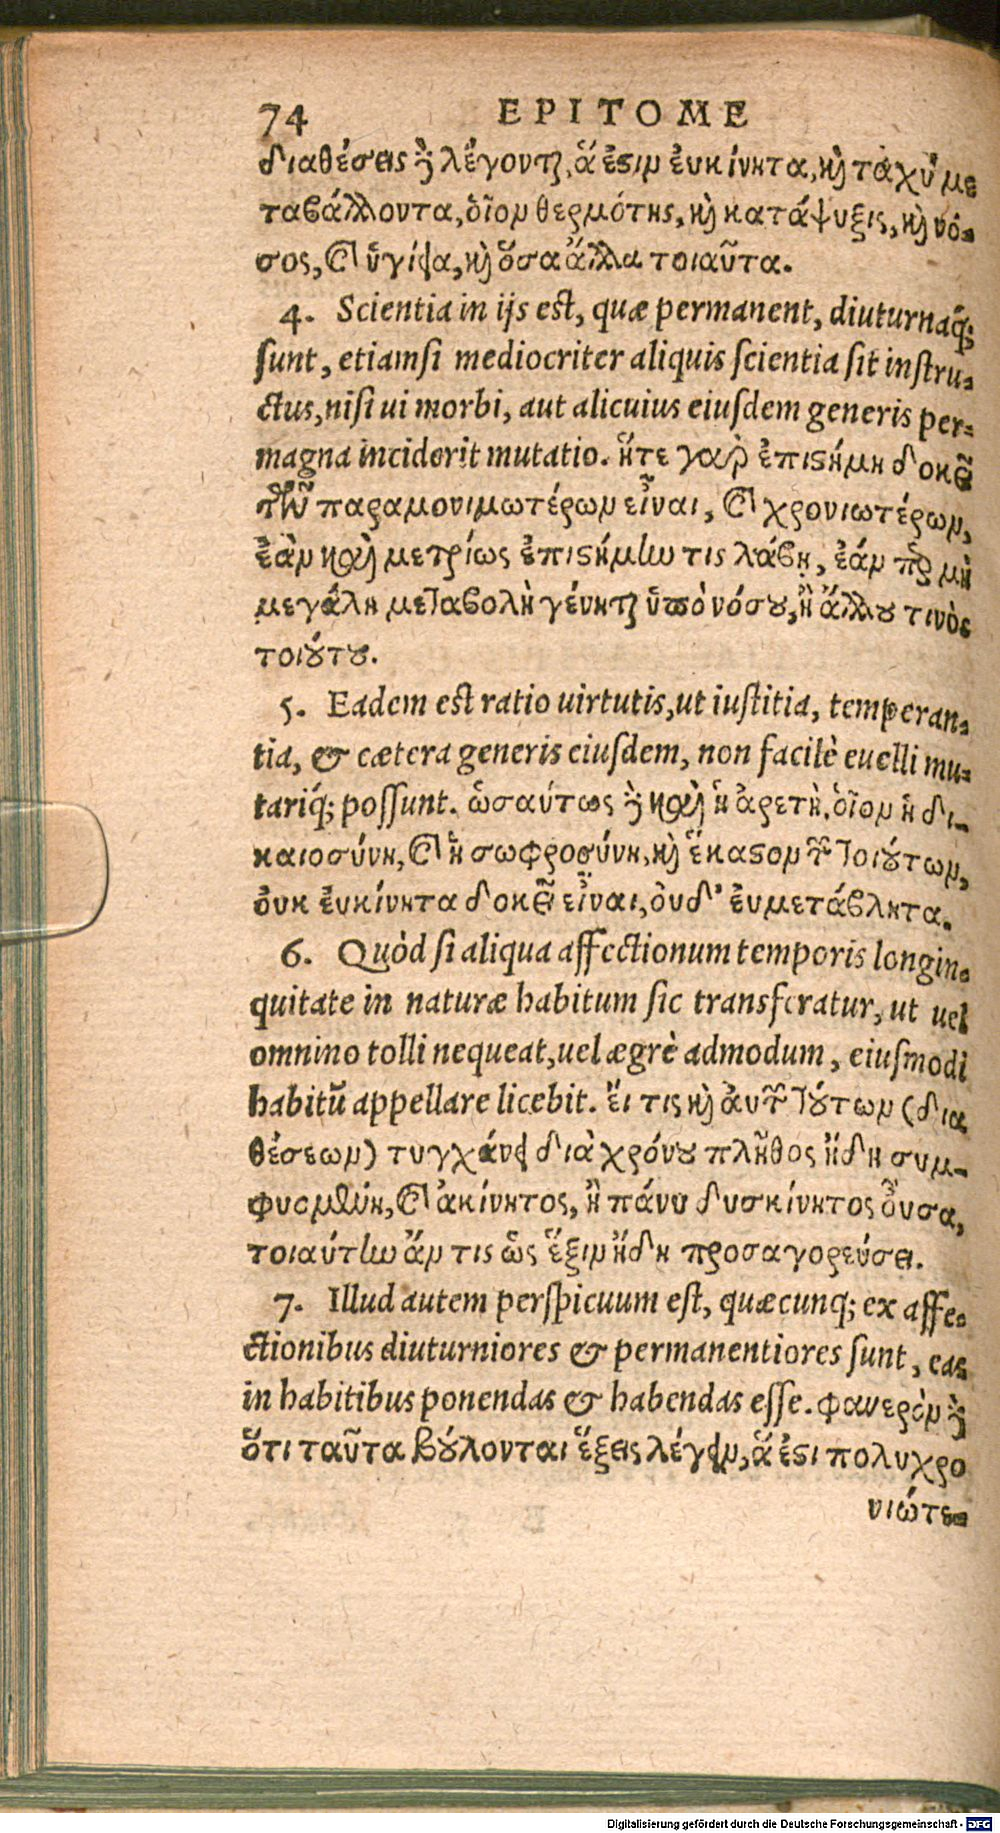 74 EPITOME
διαθέσεις ȣ̓̃ λέγονται, ἅ ἐστιν ἐυκίνητα, καὶ ταχὺ με
ταβάλλοντα, ὁῖον θερμότης, καὶ κατάψυξις, καὶ νό-
σος, καὶ ὑγίεια, καὶ ὅσα ἄλλα τοιαῦτα.
4. Scientia in ijs est, quæ permanent, diuturnaq́;
sunt, etiamsi mediocriter aliquis scientia sit instru-
ctus, nisi ui morbi, aut alicuius eiusdem generis per-
magna inciderit mutatio. ἥτε γαρ ἐπιστήμη δοκεῖ
τῶν παραμονιμωτέρων εἶναι, καὶ χρονιωτέρων,
ἐὰν καὶ μετρίως ἐπιστήμην τις λάβῃ, ἐάν περ μὴ
μεγάλη μεταβολὴ γένηται ὑπὸ νόσου, ἢ ἄλλου τινὸς
τοιούτου.
5. Eadem est ratio uirtutis, ut iustitia, temperan-
tia, & cætera generis eiusdem, non facilè euelli mu-
tariq́; possunt. ὡσαύτως δὲ καὶ ἡ ἀρετὴ, ὁῖον ἡ δι-
καιοσύνη, καὶ ἡ σωφροσύνη, καὶ ἕκαστον τῶν τοιούτων,
ὀυκ ἐυκίνητα δοκεῖ εἶναι, ὀυδ' ἐυμετάβλητα.
6. Quòd si aliqua affectionum temporis longin-
quitate in naturæ habitum sic transferatur, ut uel
omnino tolli nequeat, uel ægrè admodum, eiusmodi
habitũ appellare licebit. ἔι τις καὶ ἀυτῶν τούτων (δια
θέσεων) τυγχάνει διὰ χρόνου πλῆθος ἤδη συμ-
φυσμένη, καὶ ἀκίνητος, ἢ πάνυ δυσκίνητος ὂυσα,
τοιαύτην ἄν τις ὡς ἕξιν ἤδη προσαγορεύσει.
7. Illud autem perspicuum est, quæcunq; ex affe-
ctionibus diuturniores & permanentiores sunt, eas
in habitibus ponendas & habendas esse. φανερὸν δὲ
ὅτι ταῦτα βούλονται ἕξεις λέγειν, ἅ ἐστι πολυχρο
νιώτε-
Digitalisierung gefördert durch die Deutsche Forschungsgemeinschaft - DFG